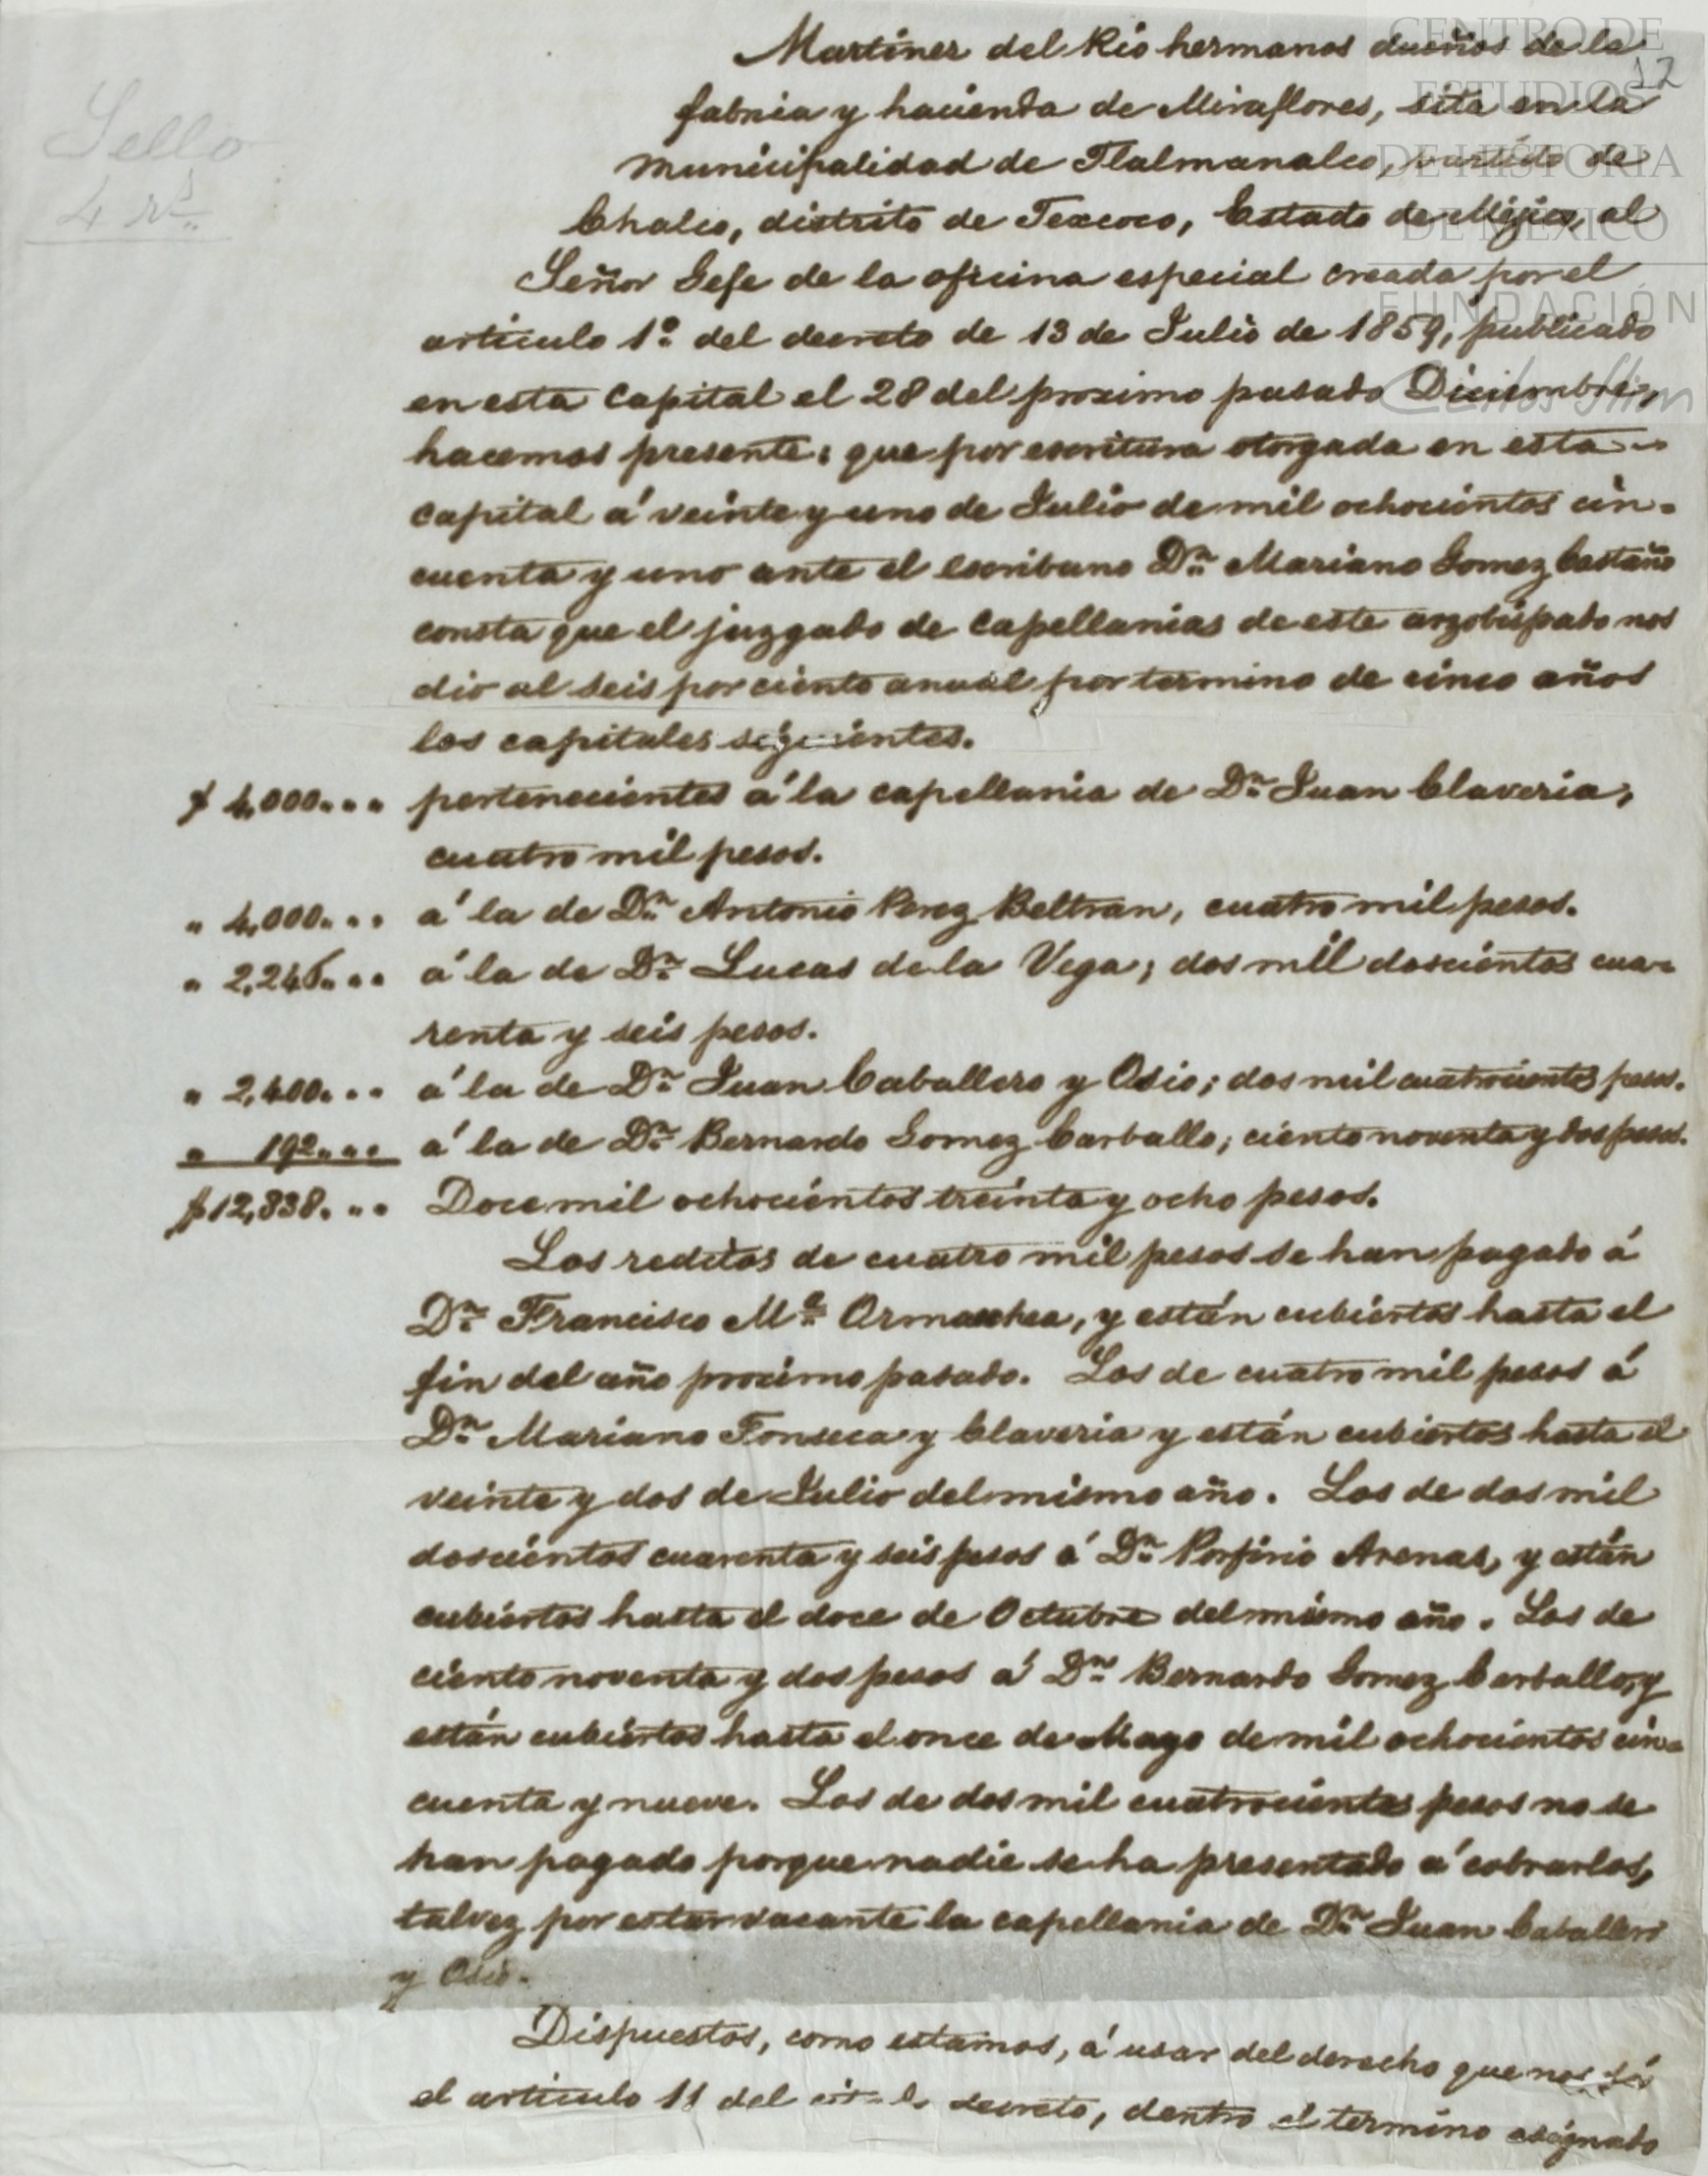 CENTRO DE
ESTUDIOS
DE HISTORIA
DE MÉXICO
FUNDACIÓN
Carlos Slim
12
Sello
4 rs.
Martinez del Rio hermanos dueños de la
fabrica y hacienda de Miraflores, sita en la
municipalidad de Tlalmanalco, partido de
Chalco, distrito de Texcoco, Estado de Mejico, al
Señor Gefe de la oficina especial creada por el
articulo 1º del decreto de 13 de Julio de 1859, publicado
en esta Capital el 28 del proximo pasado Diciembre,
hacemos presente: que por escritura otorgada en esta
capital á veinte y uno de Julio de mil ochocientos cin-
cuenta y uno ante el escribano Dn. Mariano Gomez Castaño
consta que el juzgado de capellanias de este arzobispado nos
dio al seis por ciento anual por termino de cinco años
los capitales siguientes.
$ 4,000... pertenecientes á la capellania de Dn. Juan Claveria,
cuatro mil pesos.
" 4,000... á la de Dn. Antonio Perez Beltran, cuatro mil pesos.
" 2,246... á la de Dn. Lucas de la Vega; dos mil doscientos cua-
renta y seis pesos.
" 2,400... á la de Dn. Juan Caballero y Osio; dos mil cuatrocientos pesos.
" 192... á la de Dn. Bernardo Gomez Carballo; ciento noventa y dos pesos.
$ 12,838... Doce mil ochocientos treinta y ocho pesos.
Los reditos de cuatro mil pesos se han pagado á
Dn. Francisco Ma. Ormaechea, y están cubiertos hasta el
fin del año proximo pasado. Los de cuatro mil pesos á
Dn. Mariano Fonseca y Claveria y están cubiertos hasta el
veinte y dos de Julio del mismo año. Los de dos mil
doscientos cuarenta y seis pesos á Dn. Porfirio Arenas, y están
cubiertos hasta el doce de Octubre del mismo año. Los de
ciento noventa y dos pesos á Dn. Bernardo Gomez Carballo, y
están cubiertos hasta el once de Mayo de mil ochocientos cin-
cuenta y nueve. Los de dos mil cuatrocientos pesos no se
han pagado porque nadie se ha presentado á cobrarlos,
talvez por estar vacante la capellania de Dn. Juan Caballero
y Osio.
Dispuestos, como estamos, á usar del derecho que nos dá
el articulo 11 del citado decreto, dentro el termino asignado